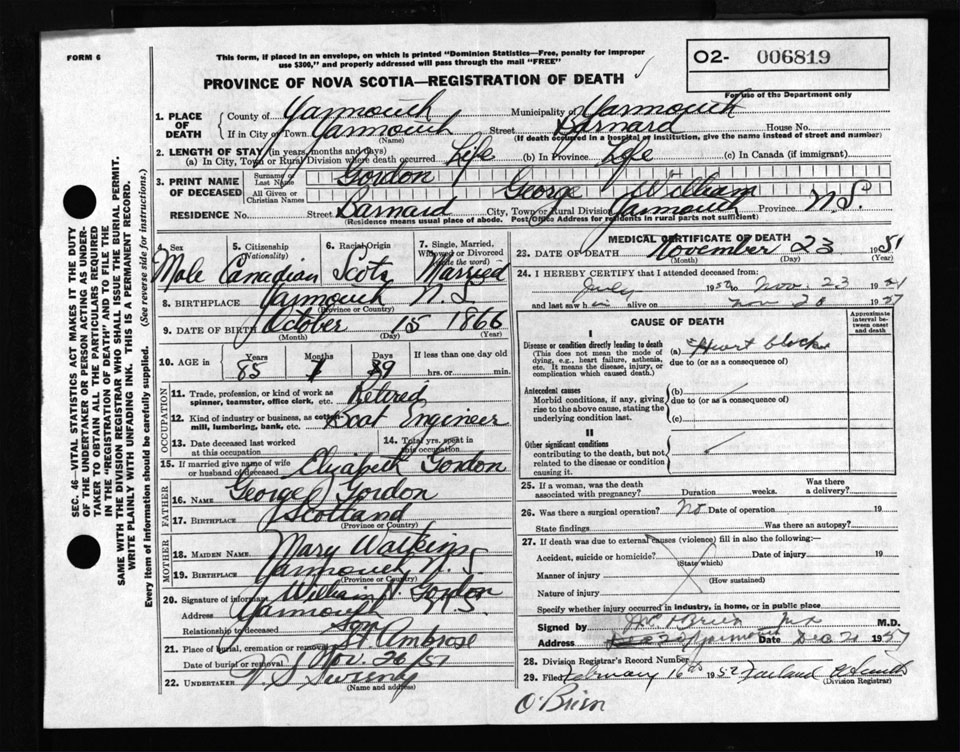 FORM 6
This form, if placed in an envelope, on which is printed "Dominion Statistics—Free, penalty for improper
use $300," and properly addressed will pass through the mail "FREE"
PROVINCE OF NOVA SCOTIA—REGISTRATION OF DEATH
O2- 006819
For use of the Department only
1. PLACE OF DEATH
County of Yarmouth Municipality of Yarmouth
If in City or Town Yarmouth Street Barnard House No.
(Name) (If death occurred in a hospital or institution, give the name instead of street and number)
2. LENGTH OF STAY (in years, months and days)
(a) In City, Town or Rural Division where death occurred Life (b) In Province Life (c) In Canada (if immigrant)
3. PRINT NAME OF DECEASED
Surname or Last Name Gordon
All Given or Christian Names George William
RESIDENCE No. Street Barnard City, Town or Rural Division Yarmouth Province N.S.
(Residence means usual place of abode. Post Office Address for residents in rural parts not sufficient)
4. Sex 5. Citizenship (Nationality) 6. Racial Origin 7. Single, Married, Widowed or Divorced (Write the word)
Male Canadian Scots Married
8. BIRTHPLACE Yarmouth N.S.
(Province or Country)
9. DATE OF BIRTH October 15 1866
(Month) (Day) (Year)
10. AGE in Years Months Days If less than one day old
85 1 9 hrs. or min.
OCCUPATION
11. Trade, profession, or kind of work as spinner, teamster, office clerk, etc. Retired
12. Kind of industry or business, as cotton mill, lumbering, bank, etc. Boat Engineer
13. Date deceased last worked at this occupation 14. Total yrs. spent in this occupation
15. If married give name of wife or husband of deceased Elizabeth Gordon
FATHER
16. NAME George J Gordon
17. BIRTHPLACE Scotland
(Province or Country)
MOTHER
18. MAIDEN NAME Mary Watkins
19. BIRTHPLACE Yarmouth N.S.
(Province or Country)
20. Signature of informant William V. Gordon
Address Yarmouth N.S.
Relationship to deceased Son
21. Place of burial, cremation or removal St. Ambrose
Date of burial or removal Nov. 26/51
22. UNDERTAKER V. S. Sweeny
(Name and address)
MEDICAL CERTIFICATE OF DEATH
23. DATE OF DEATH November 23 1951
(Month) (Day) (Year)
24. I HEREBY CERTIFY that I attended deceased from:
July 1950 to Nov. 23 1951
and last saw him alive on Nov 20 1951
CAUSE OF DEATH
Approximate interval between onset and death
I
Disease or condition directly leading to death
(This does not mean the mode of dying, e.g., heart failure, asthenia, etc. It means the disease, injury, or complication which caused death.)
(a) Heart block
due to (or as a consequence of)
Antecedent causes
Morbid conditions, if any, giving rise to the above cause, stating the underlying condition last.
(b)
due to (or as a consequence of)
(c)
II
Other significant conditions
contributing to the death, but not related to the disease or condition causing it.
25. If a woman, was the death associated with pregnancy? Duration weeks. Was there a delivery?
26. Was there a surgical operation? No Date of operation 19
State findings Was there an autopsy?
27. If death was due to external causes (violence) fill in also the following:—
Accident, suicide or homicide? Date of injury 19
(State which)
Manner of injury
(How sustained)
Nature of injury
Specify whether injury occurred in industry, in home, or in public place
Signed by O'Brien M.D.
Address Yarmouth Date Dec 21 1951
28. Division Registrar's Record Number
29. Filed February 16th 1952
(Division Registrar)
O'Brien
SEC. 46—VITAL STATISTICS ACT MAKES IT THE DUTY
OF THE UNDERTAKER OR PERSON ACTING AS UNDER-
TAKER TO OBTAIN ALL THE PARTICULARS REQUIRED
IN THE "REGISTRATION OF DEATH" AND TO FILE THE
SAME WITH THE DIVISION REGISTRAR WHO SHALL ISSUE THE BURIAL PERMIT.
WRITE PLAINLY WITH UNFADING INK. THIS IS A PERMANENT RECORD.
Every item of Information should be carefully supplied. (See reverse side for instructions.)